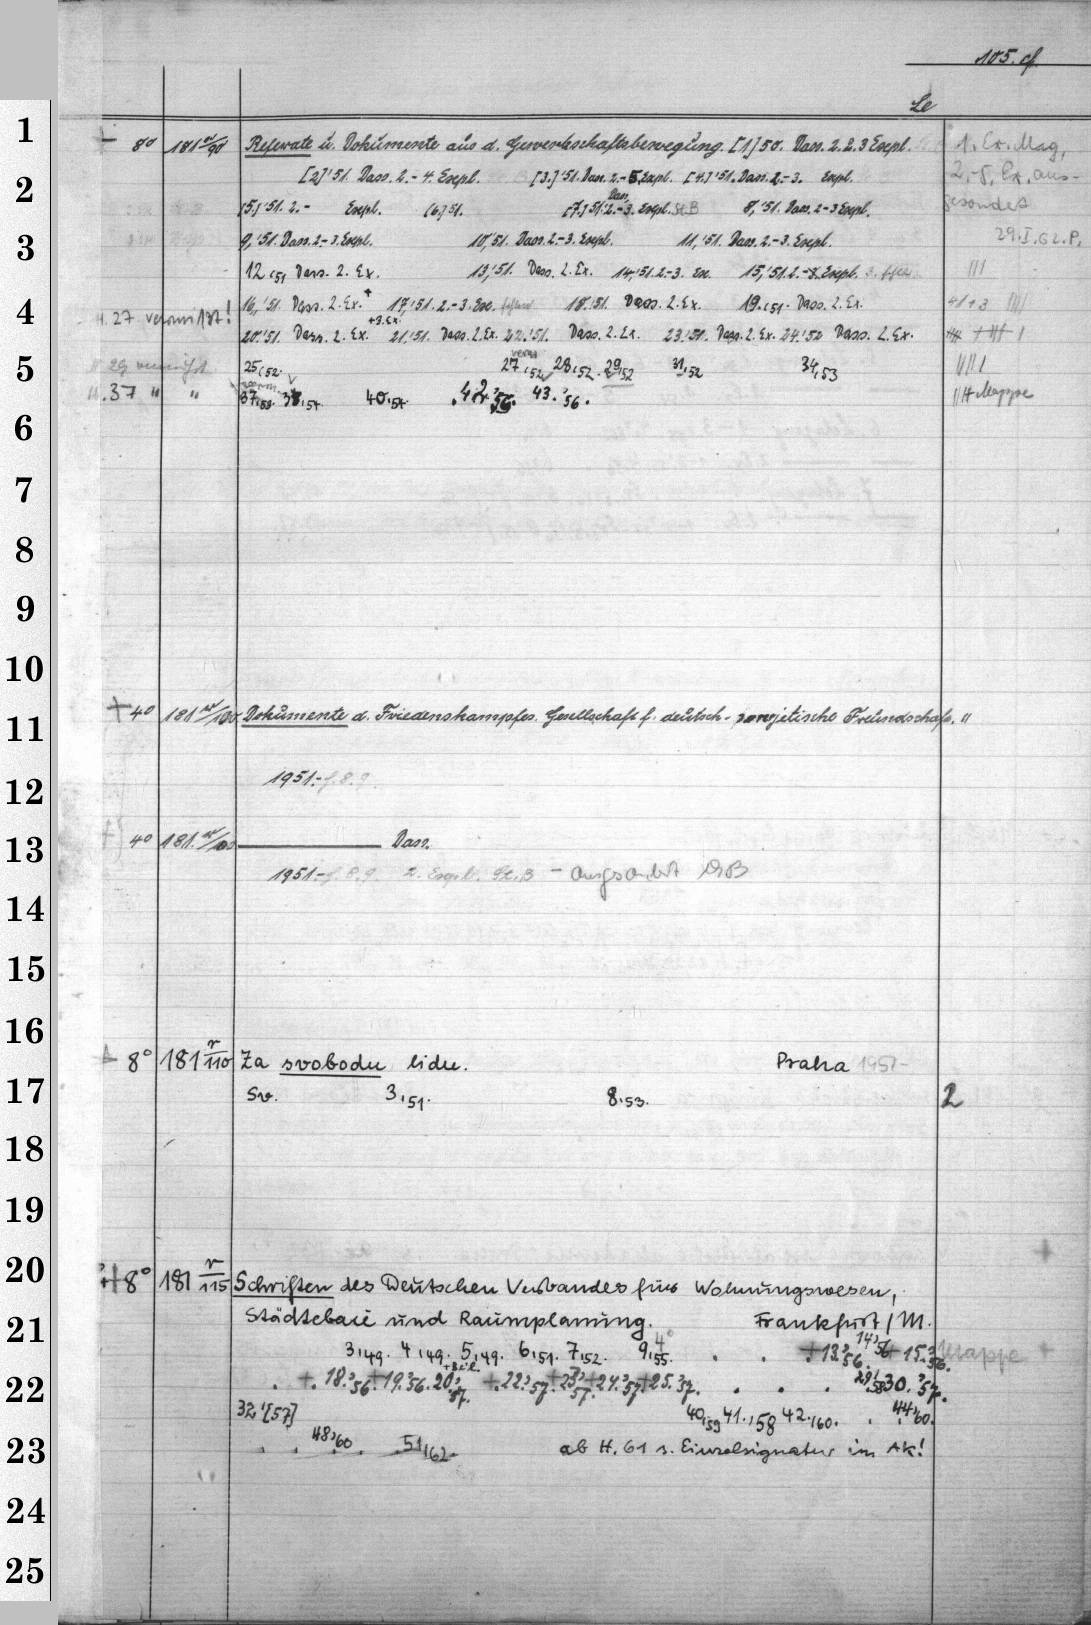 105. cf.
Le
1
— 8° 181 r/90 Referate u. Dokumente aus d. Gewerkschaftsbewegung. [1] 50. Dass. 2. 2. 3 Exepl. 1. Ex. Mag.
2 [2] '51. Dass. 2.-4. Exepl. [3.] '51. Dass. 2.-5. Exepl. [4.] '51. Dass. 2.-3. Expl. 2.-5. Ex. aus-
[5.] '51. 2.- Exepl. [6.] 51. [7.] 51. Dass. 2.-3. Exepl. St.B 8,'51. Dass. 2-3 Expl. gesondert
3 9,'51. Dass. 2-3. Exepl. 10,'51. Dass. 2-3. Exepl. 11,'51. Dass. 2.-3. Exepl. 29.I.62. P.
12,51 Dass. 2. Ex. 13,'51. Dass. 2. Ex. 14,'51. 2.-3. Ex. 15,'51. 2.-8. Exepl.
4 H. 27 vermißt! 16,'51. Dass. 2. Ex. + 17,'51. 2.-3. Ex. 18'51. Dass. 2. Ex. 19.,51. Dass. 2. Ex.
20'51. Dass. 2. Ex. +3. Ex. 21'51. Dass. 2. Ex. 22.'51. Dass. 2. Ex. 23.'51. Dass. 2. Ex. 24.'52 Dass. 2. Ex.
5 H 29 vermißt. 25,52. 27,52 28,52. 29,52 31,52 34,53
H. 37 " " 37,53. 38,54 40,54. 42,'56. 43.'56. Mappe
6
7
8
9
10
11 + 4° 181 r/100 Dokumente d. Friedenskampfes. Gesellschaft f. deutsch-sowjetische Freundschaft. "
12 1951.- f. 8. 9.
13 4° 181. r/100 ——— Dass.
1951.- f. 8. 9. 2. Expl. St.B – ausgesondert
14
15
16
8° 181 r/110 Za svobodu lidu. Praha 1951-
17 Sv. 3,51. 8,53. 2
18
19
20 + 8° 181 r/115 Schriften des Deutschen Verbandes für Wohnungswesen,
21 Städtebau und Raumplanung. Frankfurt/M.
3,49. 4,49. 5,49. 6,51. 7,52. 9,55. . . +13,'56. 14,'56 +15,'56. Mappe +
22 . +. 18.'56 +19,'56. 20,'57. +22,'57. +23,'57. +24.'57 +25.'57. . . . 29,'58 30.'57.
32,'[57] 40,59 41.,58 42.,60. . 44,'60.
23 . . 48,'60 . 51,62. ab H. 61 s. Einzelsignatur im AK!
24
25